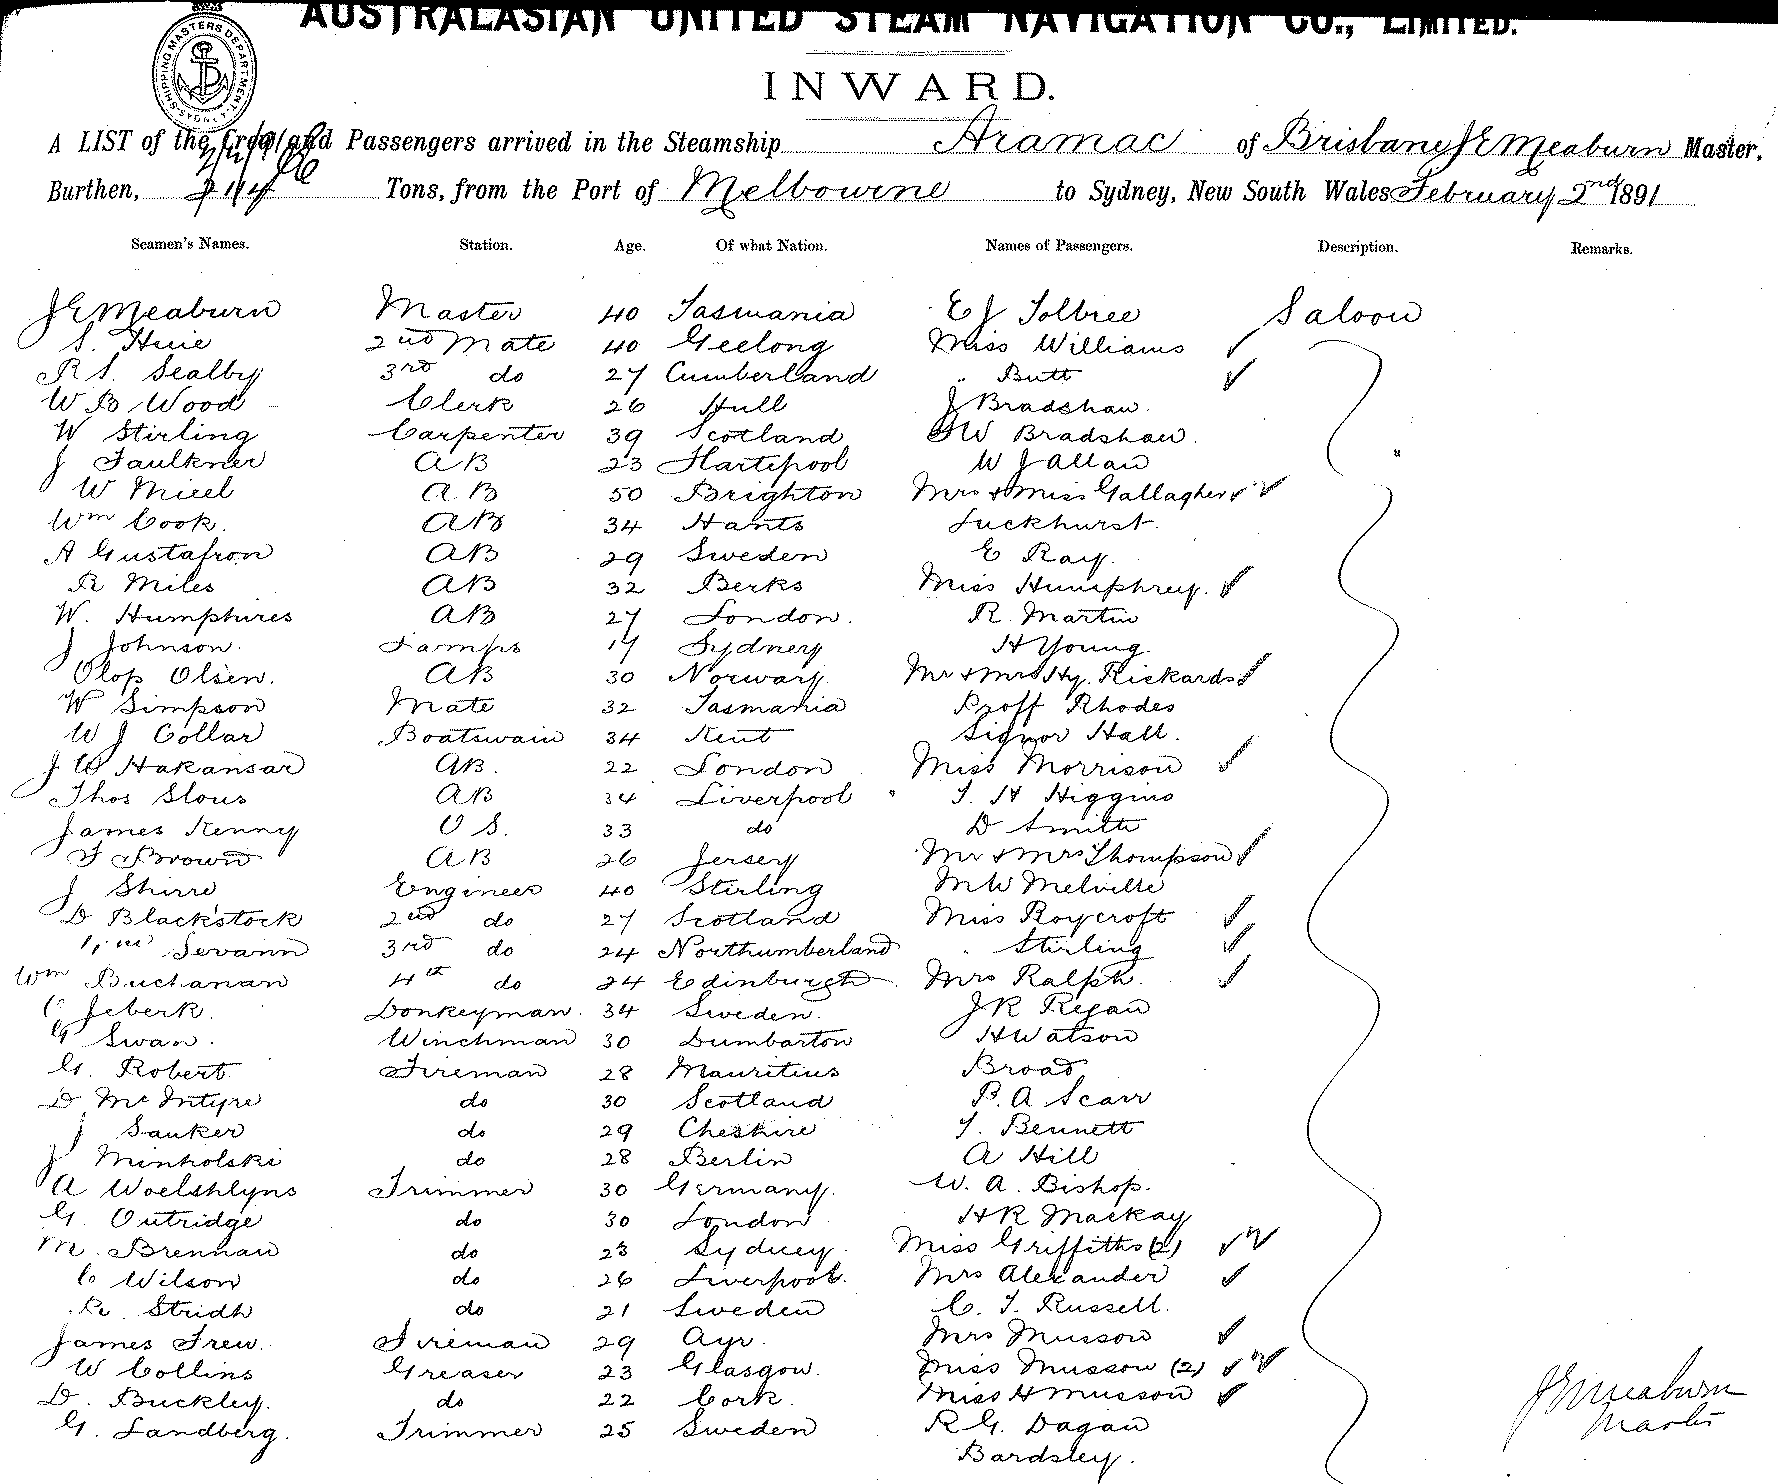 AUSTRALASIAN UNITED STEAM NAVIGATION CO., LIMITED.
SHIPPING MASTERS DEPARTMENT SYDNEY
INWARD.
A LIST of the Crew and Passengers arrived in the Steamship Aramac of Brisbane, J E Meaburn Master,
Burthen, 2114 Tons, from the Port of Melbourne to Sydney, New South Wales February 2nd 1891
Seamen's Names. Station. Age. Of what Nation. Names of Passengers. Description. Remarks.
J E Meaburn Master 40 Tasmania E J Tolbree Saloon
S. Huie 2nd Mate 40 Geelong Miss Williams
R S. Sealby 3rd do 27 Cumberland " Butt
W B Wood Clerk 26 Hull J Bradshaw.
W Stirling Carpenter 39 Scotland W Bradshaw.
J Faulkner AB 23 Hartlepool W J Allan
W AB 50 Brighton Mrs & Miss Gallagher
Wm Cook. AB 34 Hants Luckhurst.
A Gustafson AB 29 Sweden E Ray.
R Miles AB 32 Berks Miss Humphrey.
W. Humphries AB 27 London. R. Martin
J Johnson. Lamps 17 Sydney H Young.
Olop Olsen. AB 30 Norway. Mr & Mrs Hy. Rickards
W Simpson Mate 32 Tasmania Proff Rhodes
W J Collar Boatswain 34 Kent Signor Hall.
J W Hakansar AB. 22 London Miss Morrison
Thos Slous AB 34 Liverpool T. H Higgins
James Kenny O S. 33 do D Smith
F Brown AB 26 Jersey Mr & Mrs Thompson
J Shirre Engineer 40 Stirling M W Melville
D Blackstock 2nd do 27 Scotland Miss Roycroft
Sevann 3rd do 24 Northumberland " Stirling
Wm Buchanan 4th do 24 Edinburgh Mrs Ralph.
C Jeberk. Donkeyman. 34 Sweden. J R Regan
G Swan. Winchman 30 Dumbarton H Watson
G. Robert. Fireman 28 Mauritius Broad
D McIntyre do 30 Scotland B. A Scarr
J Sanker do 29 Cheshire T. Bennett
J Minholski do 28 Berlin A Hill
A Woelshlyns Trimmer 30 Germany. W. A. Bishop.
G. Outridge do 30 London H R Mackay
M. Brennan do 23 Sydney. Miss Griffiths (2)
C Wilson do 26 Liverpool. Mrs Alexander
R. Stridh do 21 Sweden C. T. Russell.
James Frew. Fireman 29 Ayr. Mrs Musson
W Collins Greaser 23 Glasgow. Miss Musson (2)
D. Buckley. do 22 Cork. Miss H Musson
G. Landberg. Trimmer 25 Sweden R G. Dagan
Bardsley.
J E Meaburn
Master